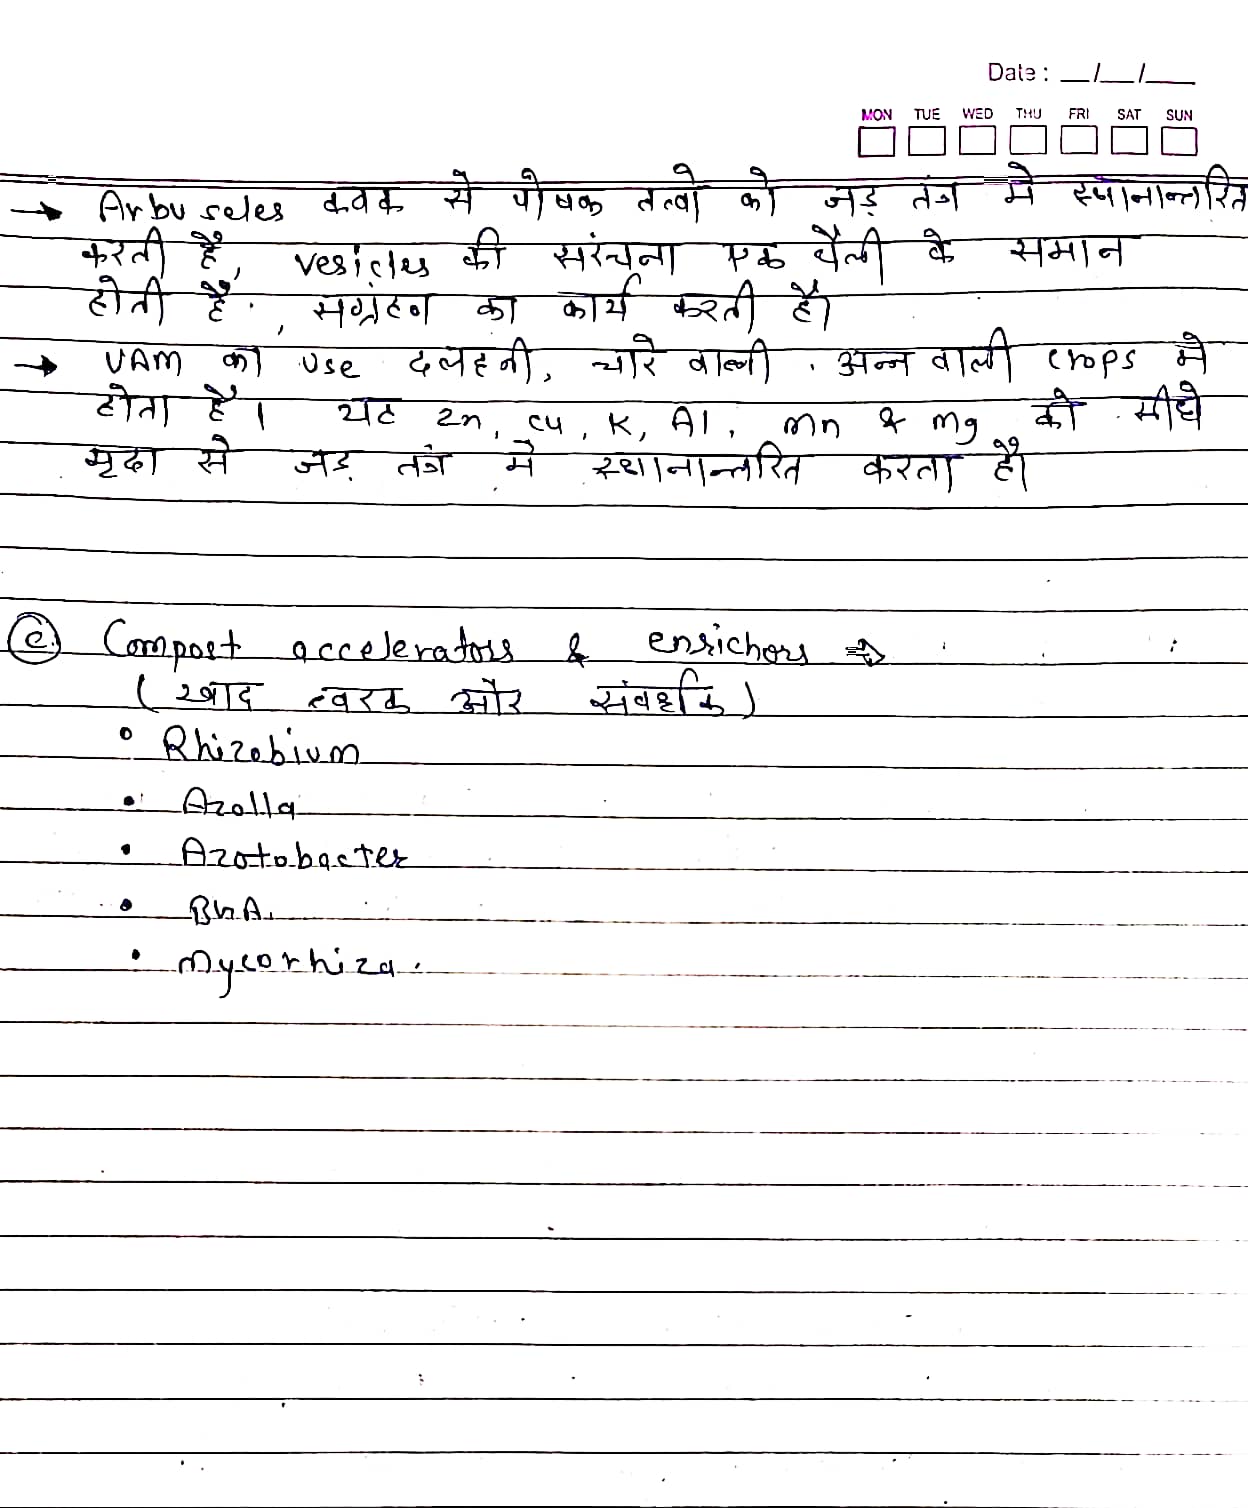 Date : __/__/__
MON TUE WED THU FRI SAT SUN
→ Arbuscles कवक से पोषक तत्वो को जड़ तंत्र मे स्थानान्तरित
करती हैं, vesicles की सरंचना एक थैली के समान
होती हैं, सग्रंहण का कार्य करती हैं।
→ VAM का use दलहनी, चारे वाली, अन्न वाली crops मे
होता हैं। यह Zn, Cu, K, Al, Mn & Mg को सीधे
मृदा से जड़ तंत्र मे स्थानान्तरित करता हैं।
(e) Compost accelerators & enrichors ⇒
(खाद त्वरक और संवर्धक)
• Rhizobium
• Azolla
• Azotobacter
• BGA
• Mycorhiza.